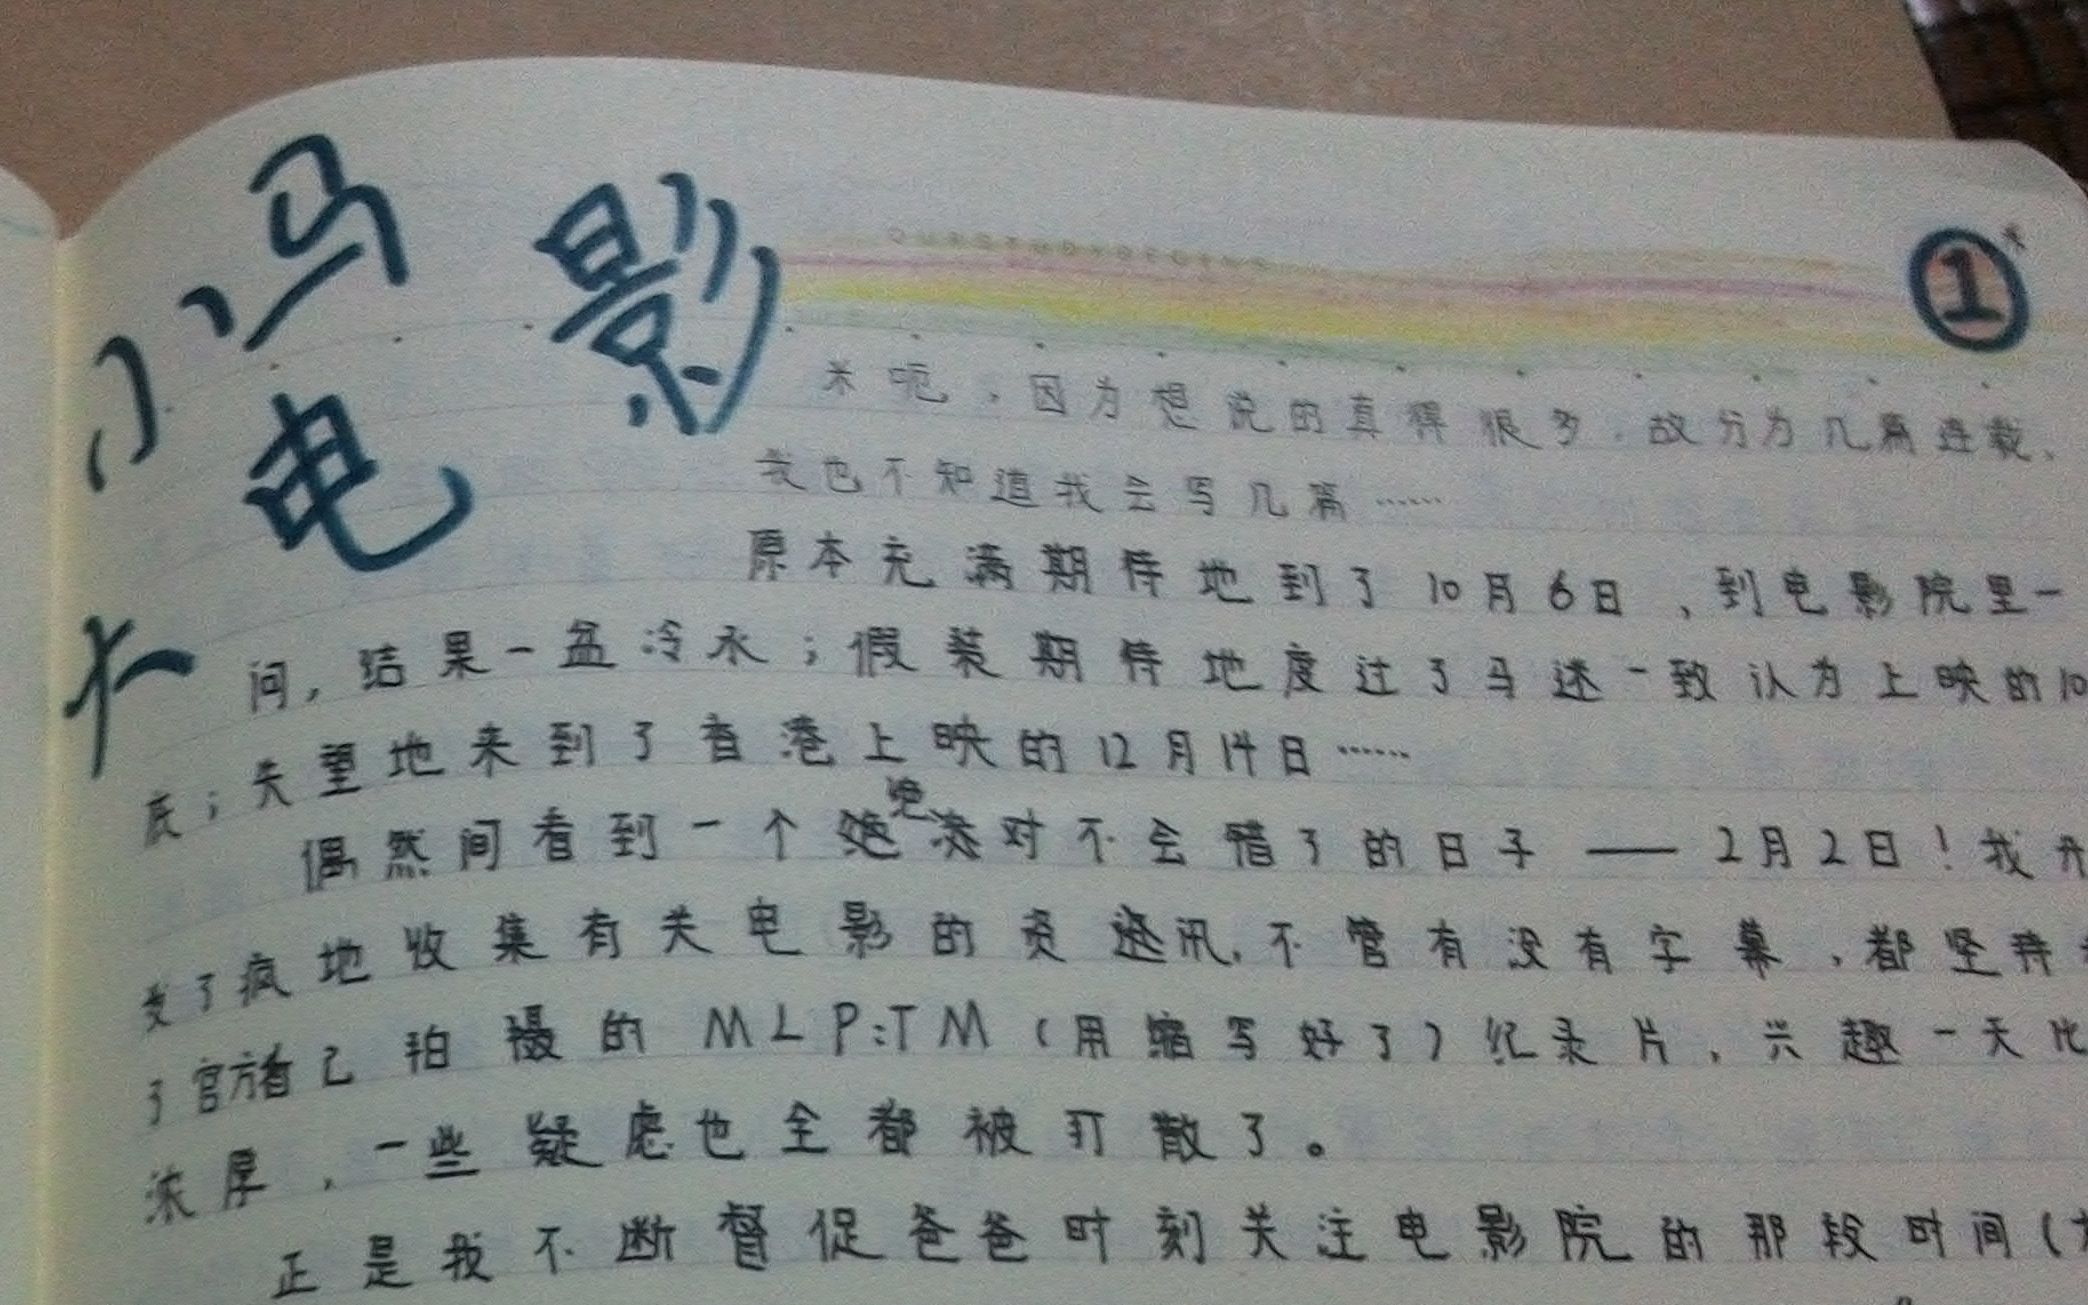 小马
大电影
①*
OURSTUDYDESENS
*呃,因为想说的真得很多,故分为几篇连载、
我也不知道我会写几篇……
原本充满期待地到了10月6日,到电影院里一
问,结果一盆冷水;假装期待地度过了马迷一致认为上映的10
底;失望地来到了香港上映的12月14日……
偶然间看到一个绝对不会错了的日子——2月2日!我开
了疯地收集有关电影的资讯,不管有没有字幕,都坚持
了官方自己拍摄的MLP:TM(用缩写好了)纪录片,兴趣一天比
浓厚,一些疑虑也全都被打散了。
正是我不断督促爸爸时刻关注电影院的那段时间(